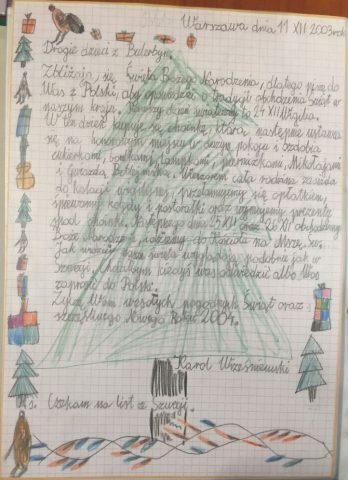 Warszawa dnia 11 XII 2003 rok
Drogie dzieci z
Zbliżają się Święta Bożego Narodzenia, dlatego piszę do
Was z Polski, aby opowiedzieć o tradycji obchodzenia Świąt w
naszym kraju. Pierwszy dzień świąteczny to 24 XII Wigilia.
W ten dzień kupuje się choinkę, którą następnie ustawia
się na honorowym miejscu w dużym pokoju i ozdabia
cukierkami, bombkami, lampkami, pierniczkami, Mikołajami
i gwiazdą Betlejemską. Wieczorem cała rodzina zasiada
do kolacji wigilijnej, przełamujemy się opłatkiem,
śpiewamy kolędy i pastorałki oraz wyjmujemy prezenty
spod choinki. Następnego dnia 25 XII oraz 26 XII obchodzimy
Boże Narodzenie, idziemy do Kościoła na Mszę św.
Jak nasze święta wyglądają podobnie jak w
Szwecji. Chciałbym kiedyś was odwiedzić albo Was
zaprosić do Polski.
Życzę Wam wesołych pogodnych Świąt oraz
szczęśliwego Nowego Roku 2004.
Karol Wrześniewski
Ps. Czekam na list z Szwecji.